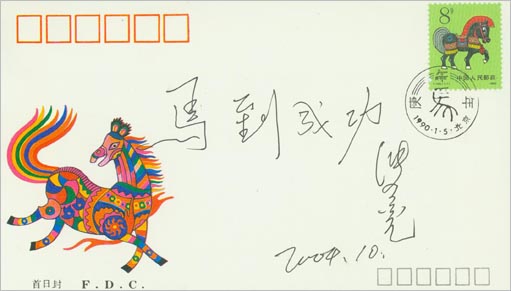 8分
中国人民邮政
1990·1·5·北京
馬到成功
2004.10.
首日封 F.D.C.